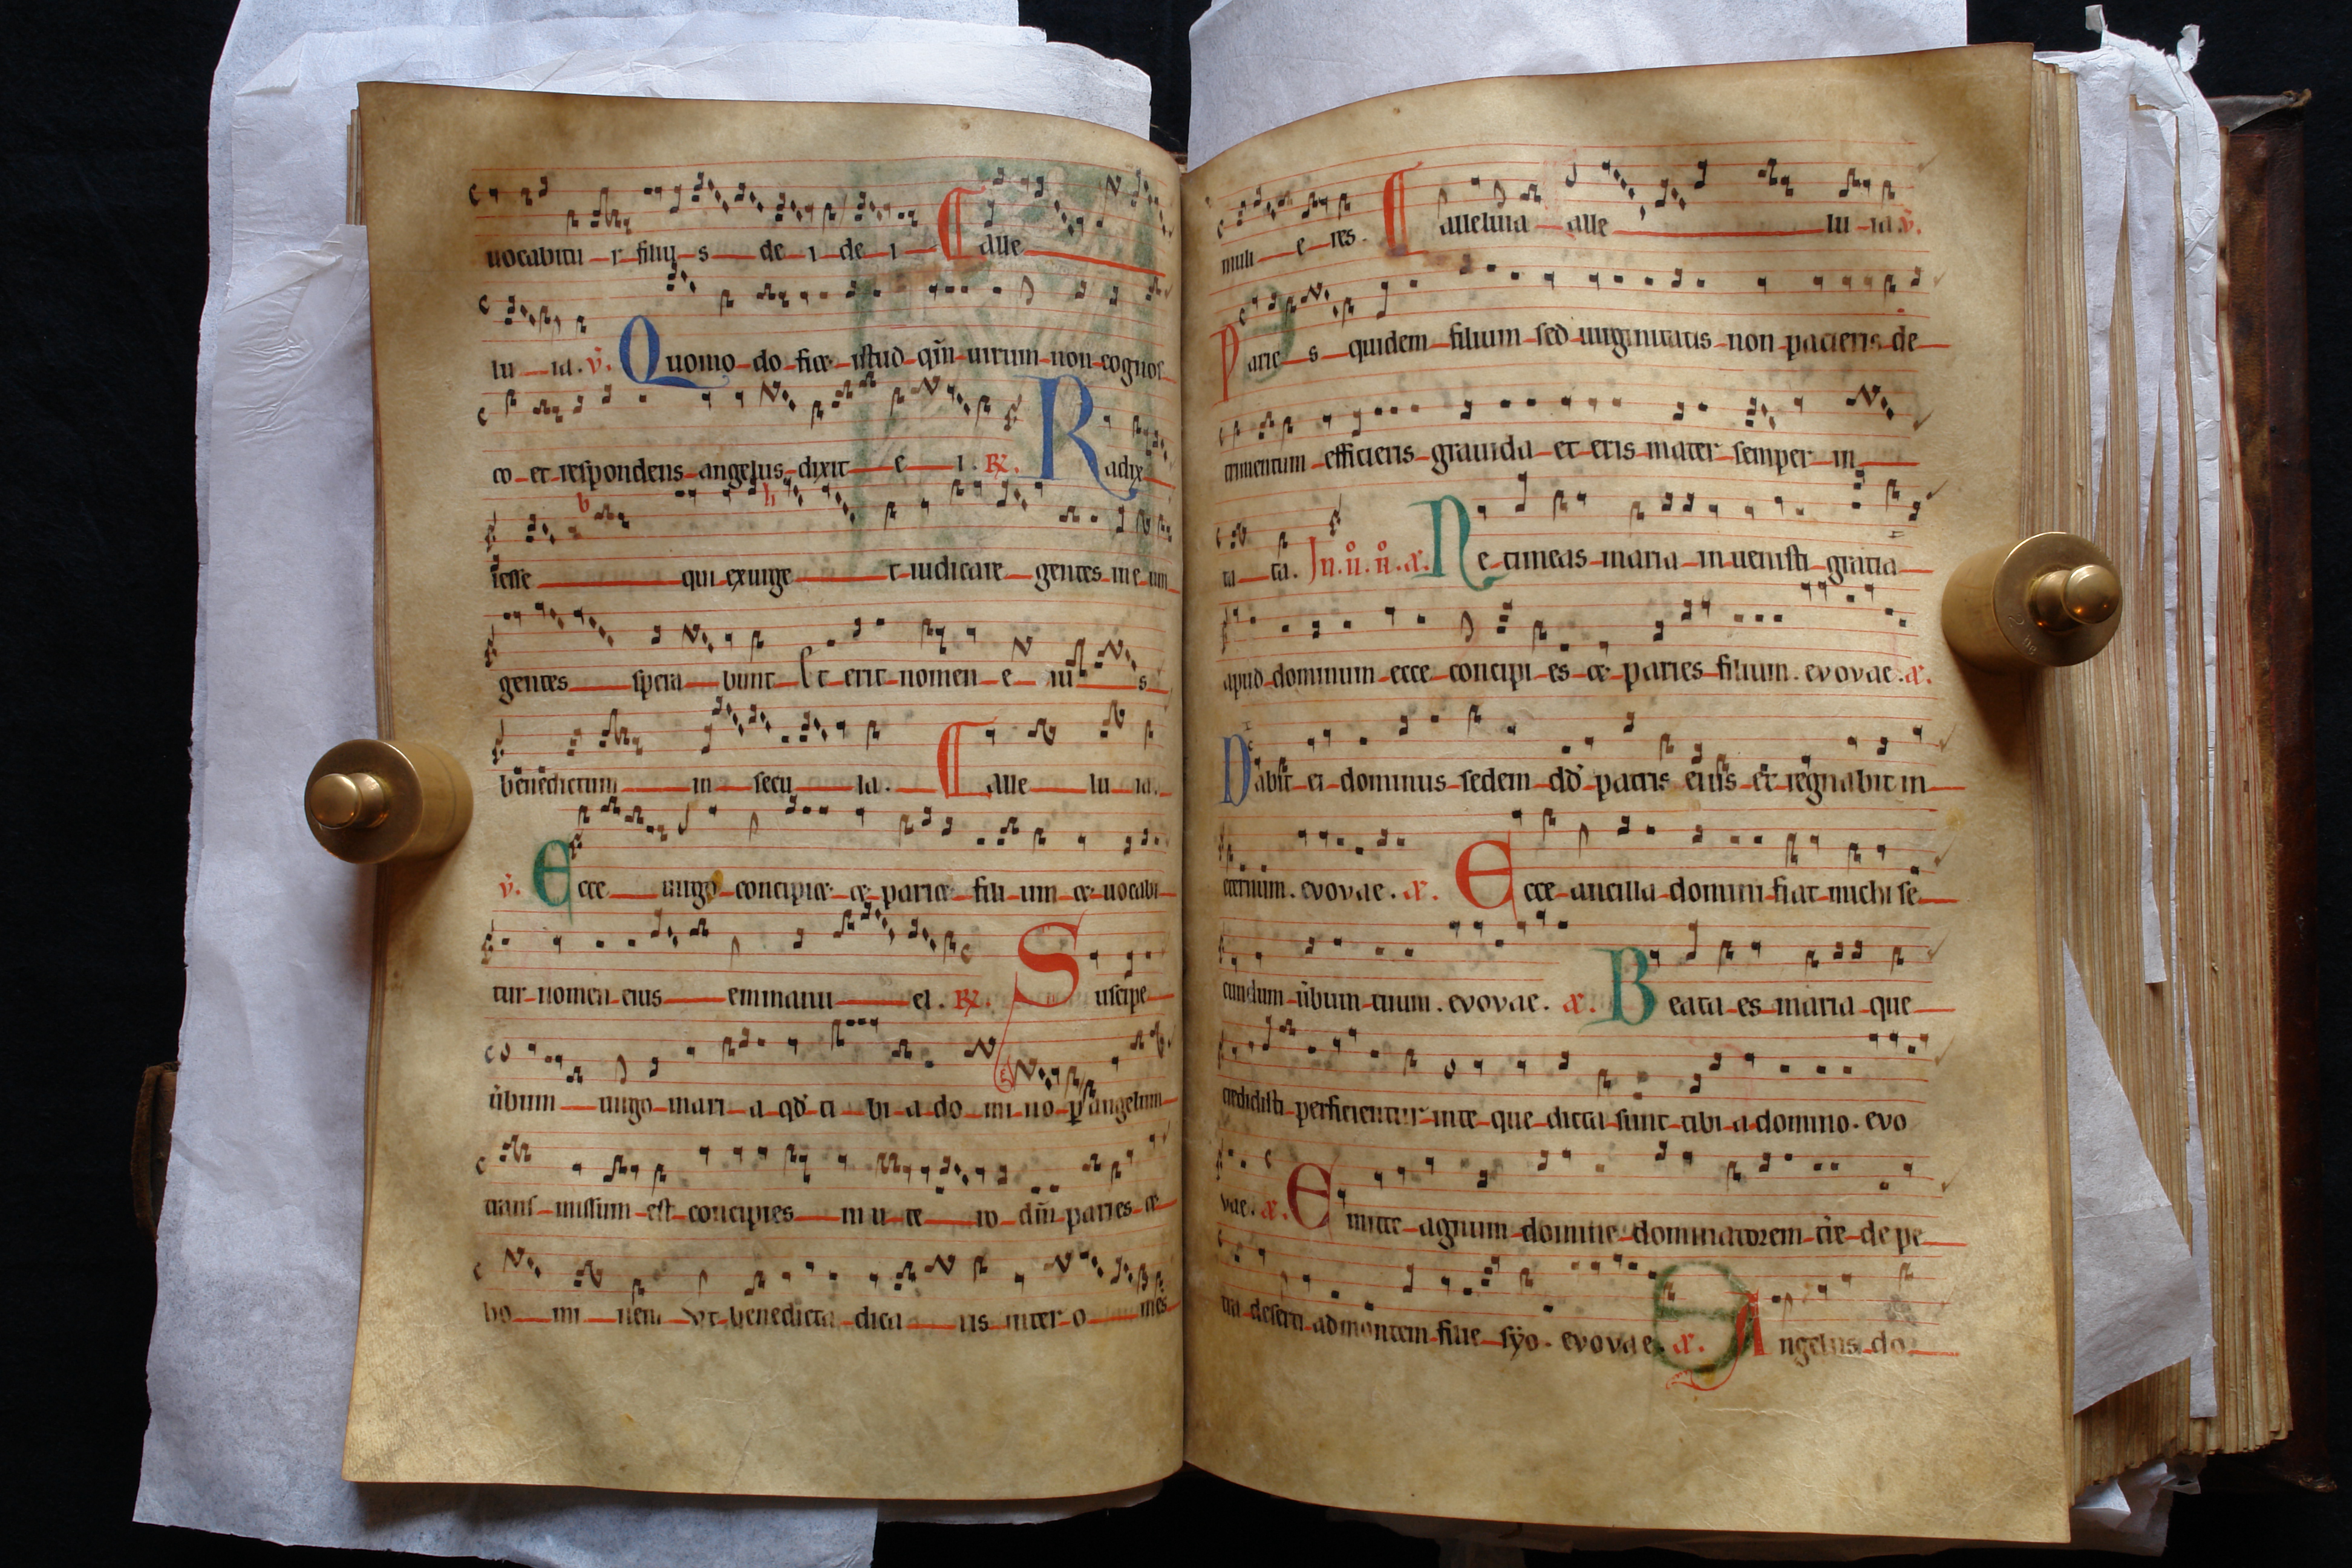 uocabitu r filiꝰ s de i de i Alle
lu ia. v̄. Quomo do fiet istud qm̄ uirum non cognos
co et respondens angelus dixit e i. R̷. Radix
iesse qui exurge t iudicare gentes in e um
gentes spera bunt Et erit nomen e iu s
benedictum in secu la. Alle lu ia.
v̄. Ecce uirgo concipiet et pariet fili um et uocabi
tur nomen eius emmanu el. R̷. Suscipe
ūbum uirgo mari a qd̄ ti bi a do mi no ꝑ angelum
trans missum est concipies in u te ro dm̄ paries et
ho mi nem Vt benedicta dica ris inter o mnes
muli e res. Alleluia alle lu ia v̄.
Parie s quidem filium sed uirginitatis non pacieris de
trimentum efficieris grauida et eris mater semper in
ta cta. In. ii. n̄. a. Ne timeas maria inuenisti gratia
apud dominum ecce concipi es et paries filium. evovae. a.
Dabit ei dominus sedem dd̄ patris eius et regnabit in
eternum. evovae. a. Ecce ancilla domini fiat michi se
cundum ūbum tuum. evovae. a. Beata es maria que
credidisti perficientur in te que dicta sunt tibi a domino. evo
vae. a. Emitte agnum domine dominatorem tr̄e de pe
tra deserti ad montem filie syo. evovae. a. Angelus do